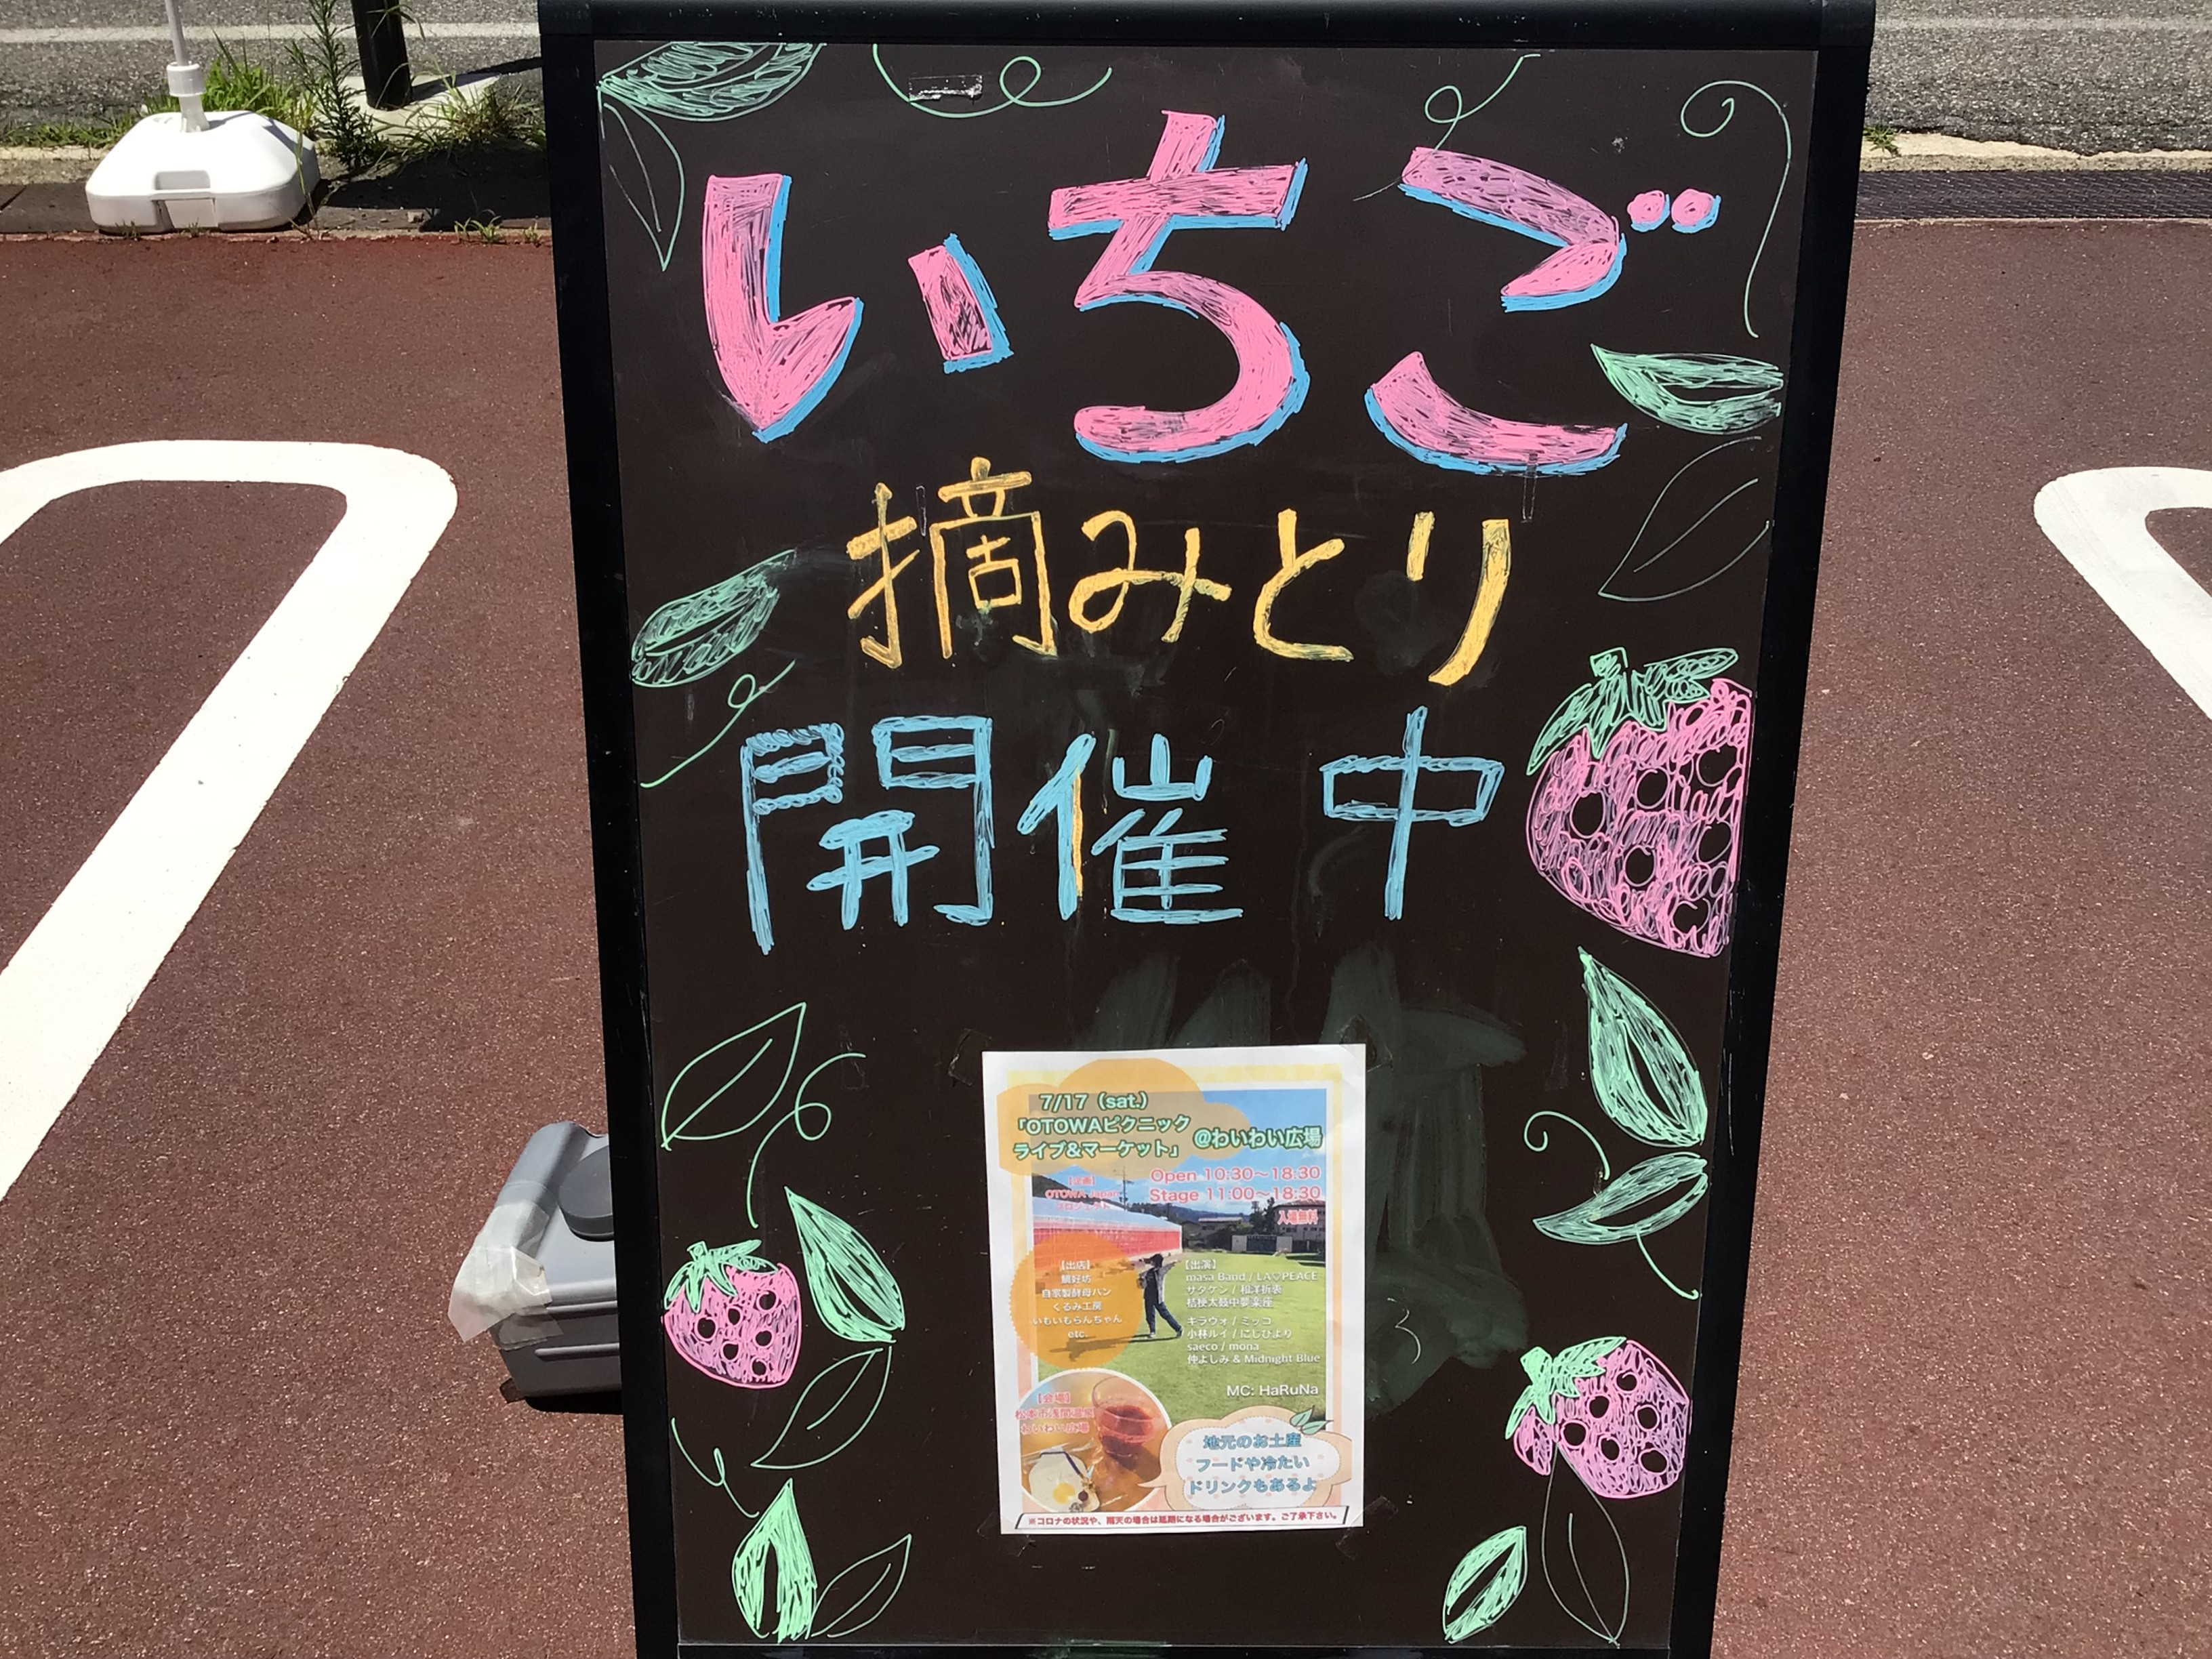 いちご
摘みとり
開催中
7/17（sat.）
「OTOWAピクニック
ライブ&マーケット」
@わいわい広場
Open 10:30〜18:30
Stage 11:00〜18:30
入場無料
【企画】
OTOWA Japan
プロジェクト
【出店】
鯛好坊
自家製酵母パン
くるみ工房
いもいもらんちゃん
etc.
【出演】
masa Band / LA♡PEACE
サタケン / 和洋折衷
桔梗太鼓中夢楽座
キラウォ / ミッコ
小林ルイ / にしひより
saeco / mona
仲よしみ & Midnight Blue
MC: HaRuNa
【会場】
松本市浅間温泉
わいわい広場
地元のお土産
フードや冷たい
ドリンクもあるよ
※コロナの状況や、雨天の場合は延期になる場合がございます。ご了承下さい。